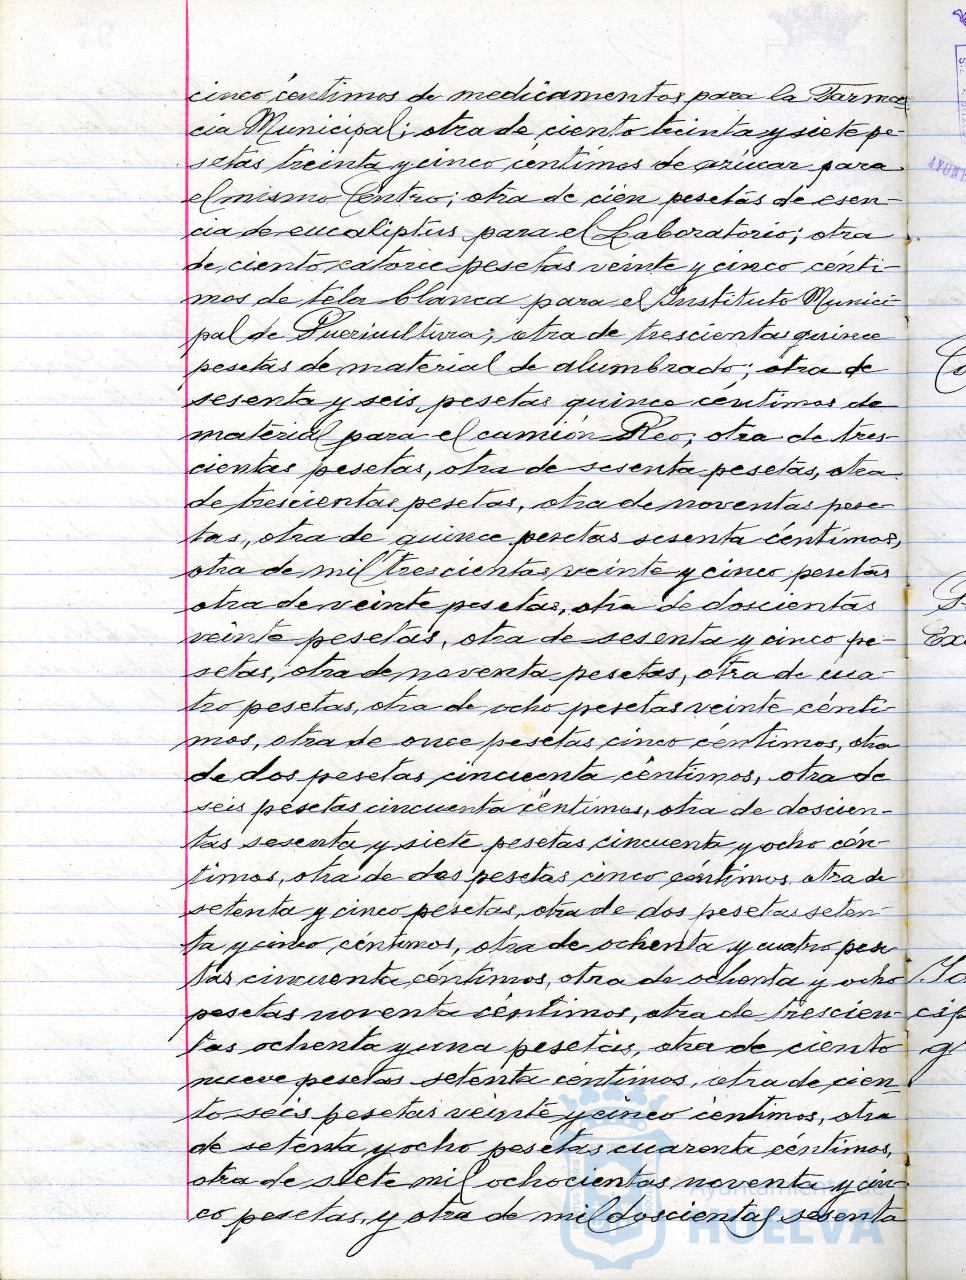 cinco céntimos de medicamentos para la Farma
cia Municipal; otra de ciento treinta y siete pe-
setas treinta y cinco céntimos de azúcar para
el mismo Centro; otra de cien pesetas de esen-
cia de eucaliptus para el Laboratorio; otra
de ciento catorce pesetas veinte y cinco cénti-
mos de tela blanca para el Instituto Munici-
pal de Puericultura; otra de trescientas quince
pesetas de material de alumbrado; otra de
sesenta y seis pesetas quince céntimos de
material para el camión Reo; otra de tres-
cientas pesetas, otra de sesenta pesetas, otra
de trescientas pesetas, otra de noventas pese-
tas, otra de quince pesetas sesenta céntimos,
otra de mil trescientas veinte y cinco pesetas
otra de veinte pesetas, otra de doscientas
veinte pesetas, otra de sesenta y cinco pe-
setas, otra de noventa pesetas, otra de cua-
tro pesetas, otra de ocho pesetas veinte cénti-
mos, otra de once pesetas cinco céntimos, otra
de dos pesetas cincuenta céntimos, otra de
seis pesetas cincuenta céntimos, otra de doscien-
tas sesenta y siete pesetas cincuenta y ocho cén-
timos, otra de dos pesetas cinco céntimos, otra de
setenta y cinco pesetas, otra de dos pesetas seten-
ta y cinco céntimos, otra de ochenta y cuatro pese
tas cincuenta céntimos, otra de ochenta y ocho
pesetas noventa céntimos, otra de trescien-
tas ochenta y una pesetas, otra de ciento
nueve pesetas setenta céntimos, otra de cien
to seis pesetas veinte y cinco céntimos, otra
de setenta y ocho pesetas cuarenta céntimos,
otra de siete mil ochocientas noventa y cin-
co pesetas, y otra de mil doscientas sesenta
Ayuntamiento de
HUELVA